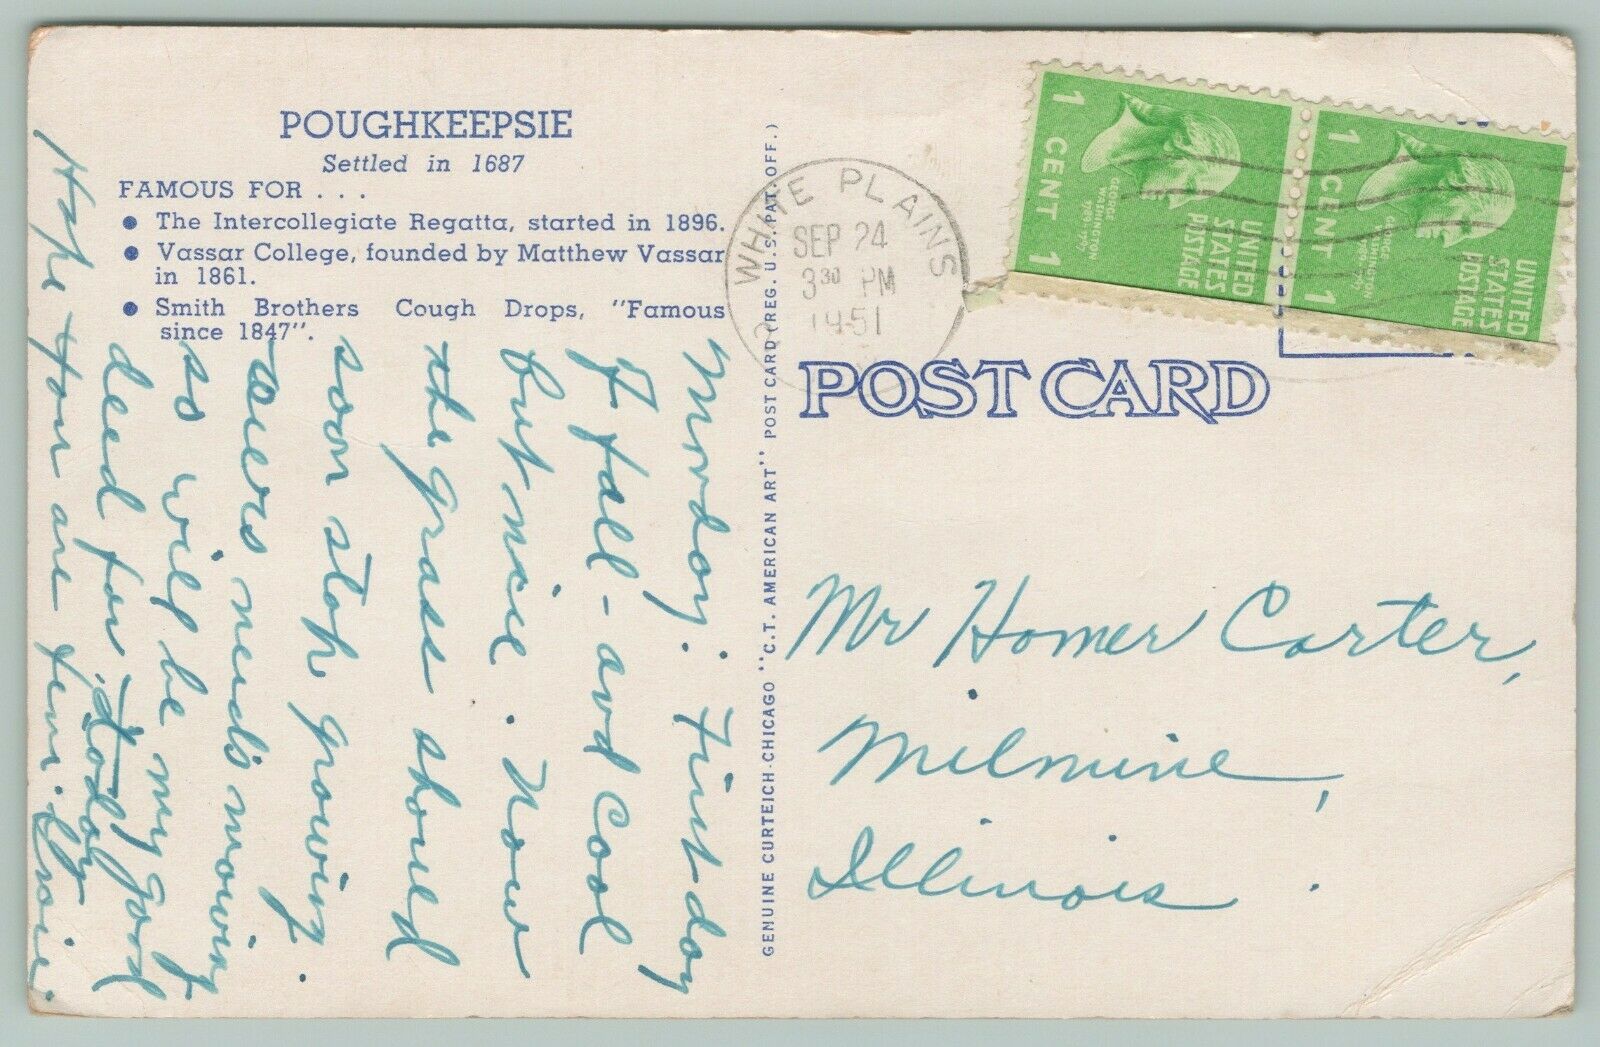 POUGHKEEPSIE
Settled in 1687
FAMOUS FOR . . .
● The Intercollegiate Regatta, started in 1896.
● Vassar College, founded by Matthew Vassar
in 1861.
● Smith Brothers Cough Drops, "Famous
since 1847".
Monday. First day
of fall - and cool
but nice. Now
the grass should
soon stop growing.
needs mowing
so will be my good
deed for today
Hope you are fine. Elsie.
GENUINE CURTEICH-CHICAGO "C.T. AMERICAN ART" POST CARD (REG. U.S. PAT. OFF.)
WHITE PLAINS
SEP 24
3 30 PM
1951
1 CENT 1
GEORGE
WASHINGTON
1789-1797
UNITED
STATES
POSTAGE
1 CENT 1
GEORGE
WASHINGTON
1789-1797
UNITED
STATES
POSTAGE
POST CARD
Mr Homer Carter,
Milmine,
Illinois.